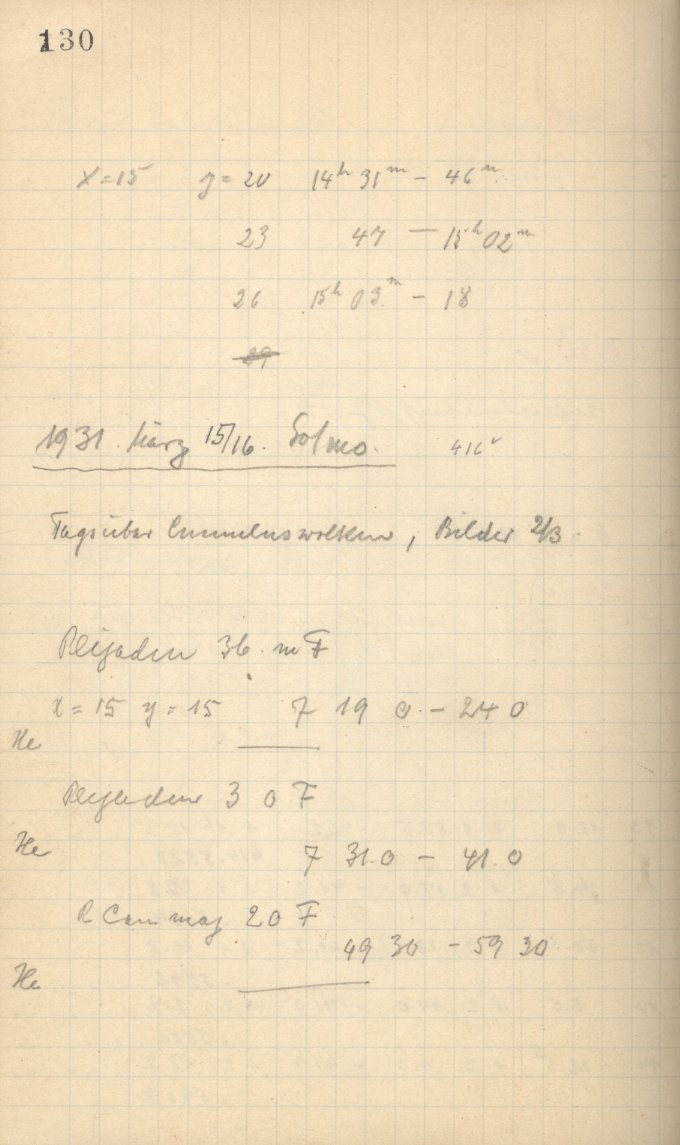 130
x=15 y=20 14h 31m – 46m
23 47 – 15h 02m
26 15h 03m – 18
29
1931 März 15/16. 416v
Tagsüber Cumuluswolken, Bilder 2/3.
Plejaden 36. m F
x=15 y=15 7 19 0 – 24 0
He
Plejaden 3 0 F
He 7 31.0 – 41.0
R Can maj 20 F
49 30 – 59 30
He